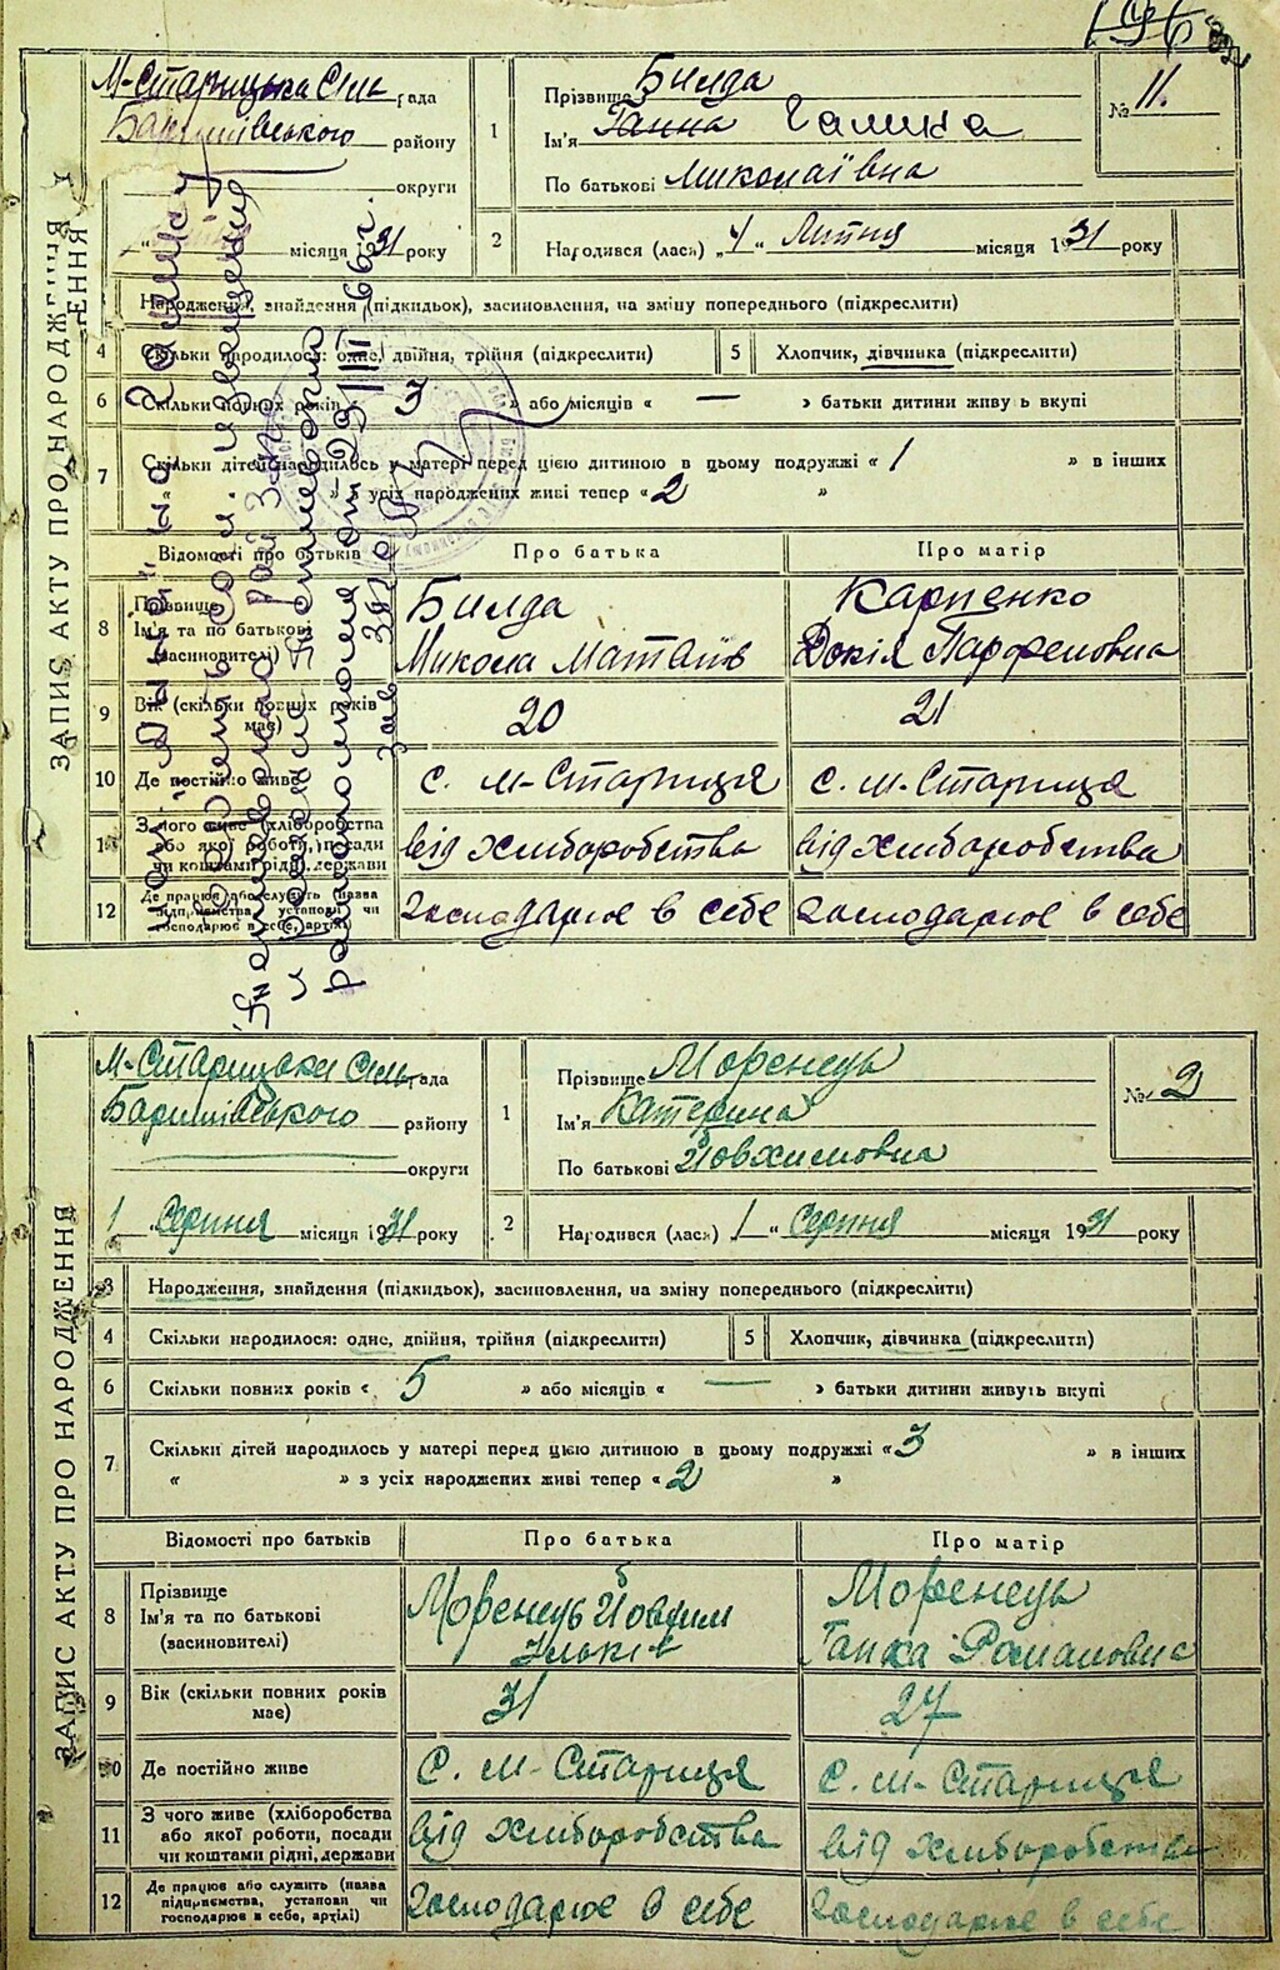 196
ЗАПИС АКТУ ПРО НАРОДЖЕННЯ
М-Старицька Сіль рада
Баришівського району
округи
місяця 1931 року
1 Прізвище Билда
Ім'я Ганна Галина
По батькові Миколаївна
№ 11.
2 Народився (лась) „4“ Липня місяця 1931 року
Народження, знайдення (підкидьок), засиновлення, на зміну попереднього (підкреслити)
4 Скільки народилося: одне, двійня, трійня (підкреслити) 5 Хлопчик, дівчинка (підкреслити)
6 Скільки повних років « 3 » або місяців « — » батьки дитини живуть вкупі
7 Скільки дітей народилось у матері перед цією дитиною в цьому подружжі « 1 » в інших
« » з усіх народжених живі тепер « 2 »
Відомості про батьків Про батька Про матір
8 Прізвище Ім'я та по батькові (засиновителі)
Билда Микола Матвіїв
Карпенко Докія Парфеновна
9 Вік (скільки повних років має) 20 21
10 Де постійно живе с. М-Стариця с. М-Стариця
11 З чого живе (хліборобства або якої роботи, посади чи коштами рідні, держави від хліборобства від хліборобства
12 Де працює або служить (назва підприємства, установи чи господарює в себе, артілі) господарює в себе господарює в себе
ЗАПИС АКТУ ПРО НАРОДЖЕННЯ
М-Старицька Сіль рада
Баришівського району
округи
1 „Серпня місяця 1931 року
1 Прізвище Моренець
Ім'я Катерина
По батькові Йовхимовна
№ 2
2 Народився (лась) 1 “ Серпня місяця 1931 року
3 Народження, знайдення (підкидьок), засиновлення, на зміну попереднього (підкреслити)
4 Скільки народилося: одне, двійня, трійня (підкреслити) 5 Хлопчик, дівчинка (підкреслити)
6 Скільки повних років « 5 » або місяців « — » батьки дитини живуть вкупі
7 Скільки дітей народилось у матері перед цією дитиною в цьому подружжі « 3 » в інших
« » з усіх народжених живі тепер « 2 »
Відомості про батьків Про батька Про матір
8 Прізвище Ім'я та по батькові (засиновителі)
Моренець Йовхим Ільків
Моренець Ганна Романовна
9 Вік (скільки повних років має) 31 27
10 Де постійно живе с. М-Стариця с. М-Стариця
11 З чого живе (хліборобства або якої роботи, посади чи коштами рідні, держави від хліборобства від хліборобства
12 Де працює або служить (назва підприємства, установи чи господарює в себе, артілі) господарює в себе господарює в себе